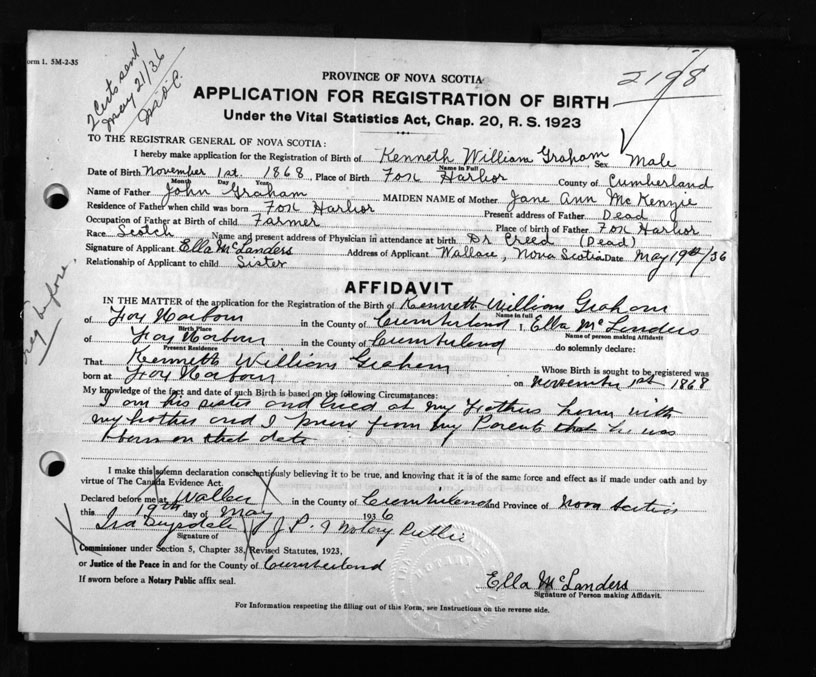 orm 1. 5M-2-35
2 Certs sent
May 21/36
2198
PROVINCE OF NOVA SCOTIA
APPLICATION FOR REGISTRATION OF BIRTH
Under the Vital Statistics Act, Chap. 20, R. S. 1923
TO THE REGISTRAR GENERAL OF NOVA SCOTIA:
I hereby make application for the Registration of Birth of Kenneth William Graham Sex Male
Name in Full
Date of Birth November 1st. 1868, Place of Birth Fox Harbor County of Cumberland
Month Day Year
Name of Father John Graham MAIDEN NAME of Mother Jane Ann McKenzie
Residence of Father when child was born Fox Harbor Present address of Father Dead
Occupation of Father at Birth of child Farmer Place of birth of Father Fox Harbor
Race Scotch Name and present address of Physician in attendance at birth Dr Creed (Dead)
Signature of Applicant Ella McLanders Address of Applicant Wallace, Nova Scotia Date May 19th/36
Relationship of Applicant to child Sister
AFFIDAVIT
IN THE MATTER of the application for the Registration of the Birth of Kenneth William Graham
Name in full
of Fox Harbour in the County of Cumberland I, Ella McLanders
Birth Place Name of person making Affidavit
of Fox Harbour in the County of Cumberland do solemnly declare:
Present Residence
That Kenneth William Graham Whose Birth is sought to be registered was
born at Fox Harbour on November 1st 1868
My knowledge of the fact and date of such Birth is based on the following Circumstances:
I am his sister and lived at my Fathers home with
my brother and I know from my Parents that he was
born on that date
reg before.
I make this solemn declaration conscientiously believing it to be true, and knowing that it is of the same force and effect as if made under oath and by
virtue of The Canada Evidence Act.
Declared before me at Wallace in the County of Cumberland and Province of Nova Scotia
this 19th day of May 1936
J P. & Notary Public
Signature of
Commissioner under Section 5, Chapter 38, Revised Statutes, 1923,
or Justice of the Peace in and for the County of Cumberland
If sworn before a Notary Public affix seal.
NOTARY
Ella McLanders
Signature of Person making Affidavit.
For Information respecting the filling out of this Form, see Instructions on the reverse side.